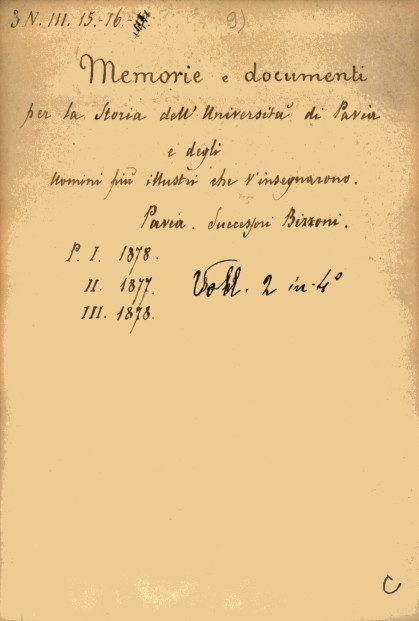 3 N. III. 15.-16.
9)
Memorie e documenti
per la Storia dell' Università di Pavia
e degli
Uomini più illustri che v'insegnarono.
Pavia. Successori Bizzoni.
P. I. 1878.
II. 1877. Voll. 2 in-4°
III. 1878.
C